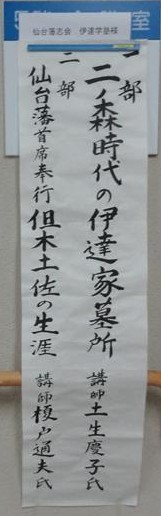 仙台藩志会 伊達学塾様
一部
二ノ森時代の伊達家墓所
講師 土生慶子氏
二部
仙台藩首席奉行 但木土佐の生涯
講師 榎戸通夫氏